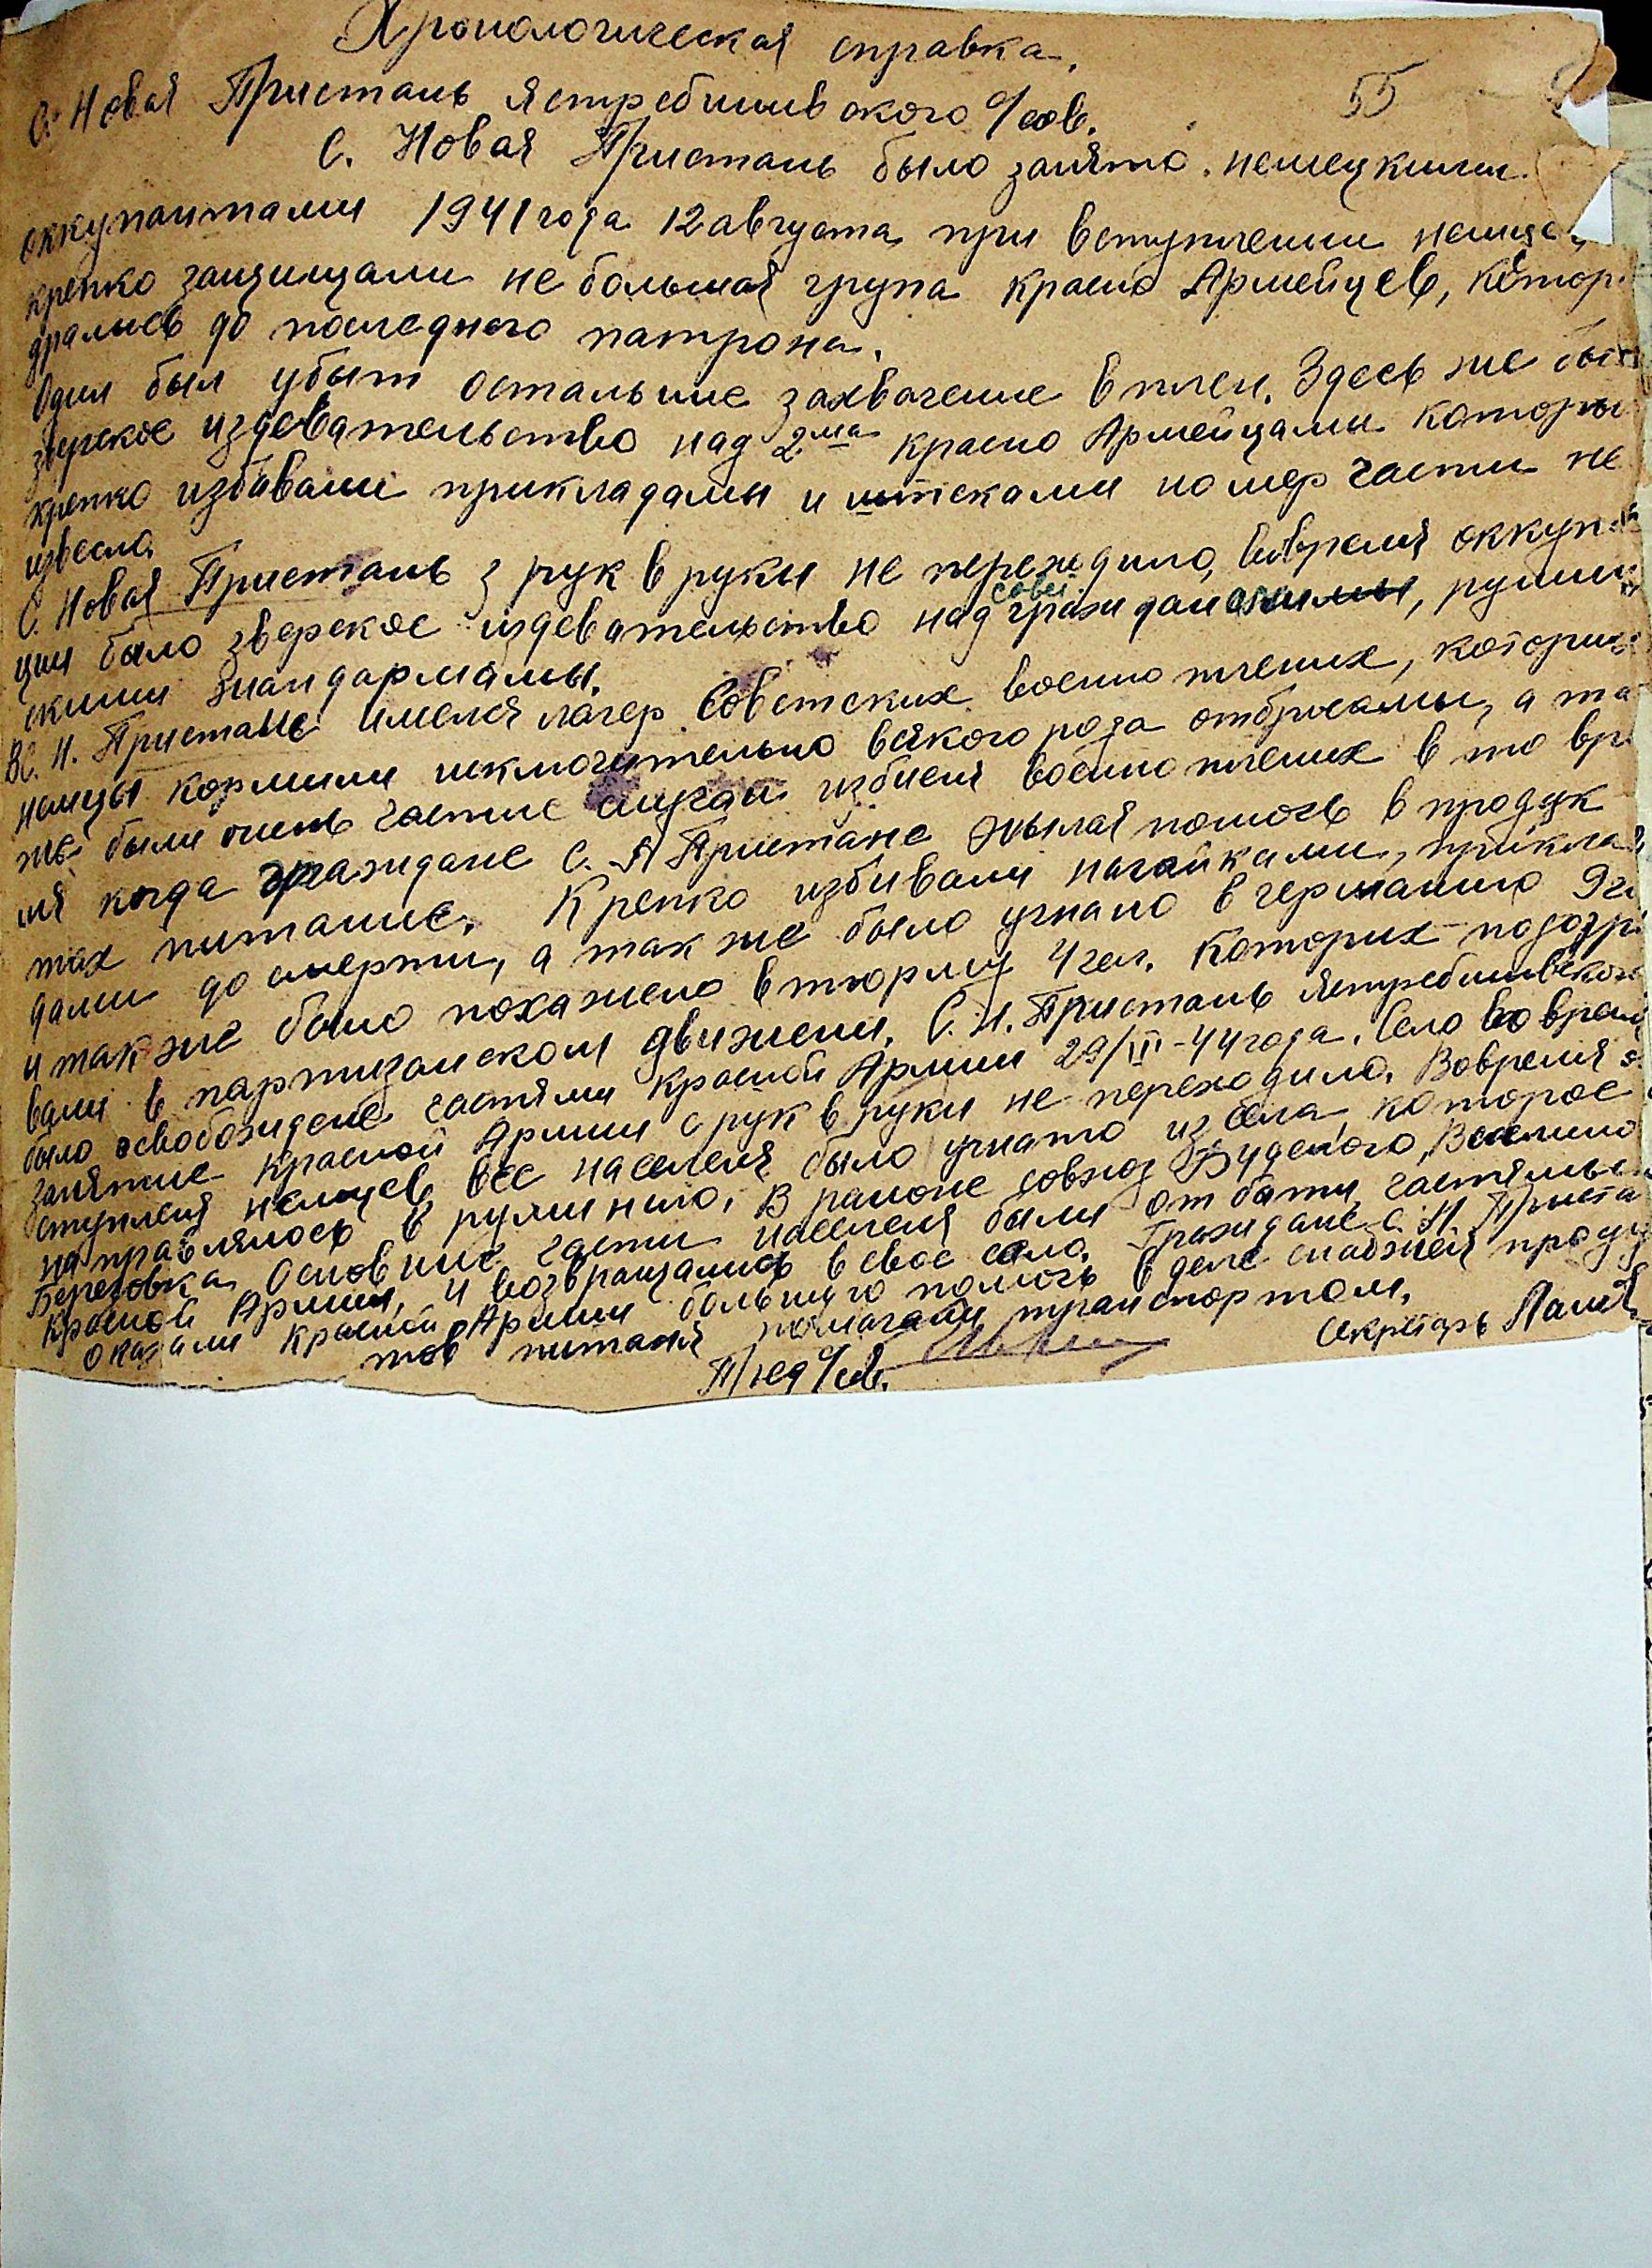 Хронологическая справка.
55
С. Новая Пристань Ястребинивского с/сов.
С. Новая Пристань было занято немецкими
оккупантами 1941 года 12 августа при вступлении немце
крепко защищали не большая група красно Армейцев, котор
дрались до последнего патрона.
Один был убыт остальние захваченые в плен. Здесь же бы
зверское издевательство над 2ма красно Армейцами которы
крепко избивали прикладамы и штиками номер части не
извесно.
С. Новая Пристань з рук в руки не переходило, вовремя оккупа
ции было зверское издевательство над совет. гражданами, румин
скими жандармамы.
В с. Н. Пристане имелся лагер Советских военно плених, которих
немцы кормили исключительно всякого рода отбросамы, а так
же были очень частие случаи избиеня военнопленых в то вре
мя когда граждане с. Н Пристане помочь в продук
тах питание. Крепко избивали нагайками, прикла
дами до смерти, а так же было угнано в германию 9
и так же было посажено в тюрму 4 чел. Которих подозри
вали в партизанском движени. С. Н. Пристань Ястребинивского
было освобождене частями Красной Армии 29/III-44 года. Село во время
занятие Красной Армии с рук в руки не переходило. Вовремя
ступленя немцев все населеня было угнато из села, которое
направлялось в руминию. В районе совхоз Буденого, Веселино
Березовка Основние части населеня были отбаты частямы
Красной Армии, и возвращались в свое село. Граждане с. Н. Приста
оказали Красной Армии большую помочь в деле снабженя продук
тов питаня помагали транспортом.
Пред с/сов. Секретарь